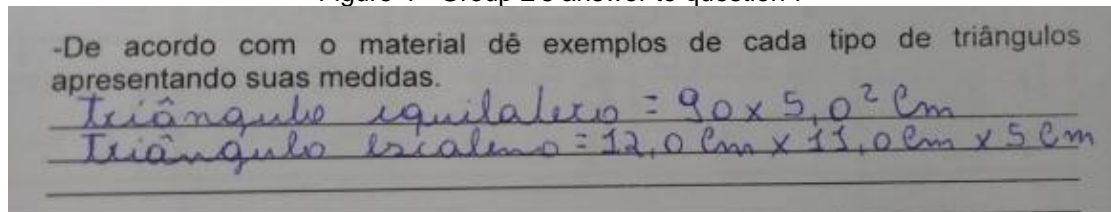 -De acordo com o material dê exemplos de cada tipo de triângulos
apresentando suas medidas.
Triângulo equilatero = 90 x 5,0² Cm
Triângulo escaleno = 12,0 Cm x 11,0 Cm x 5 Cm